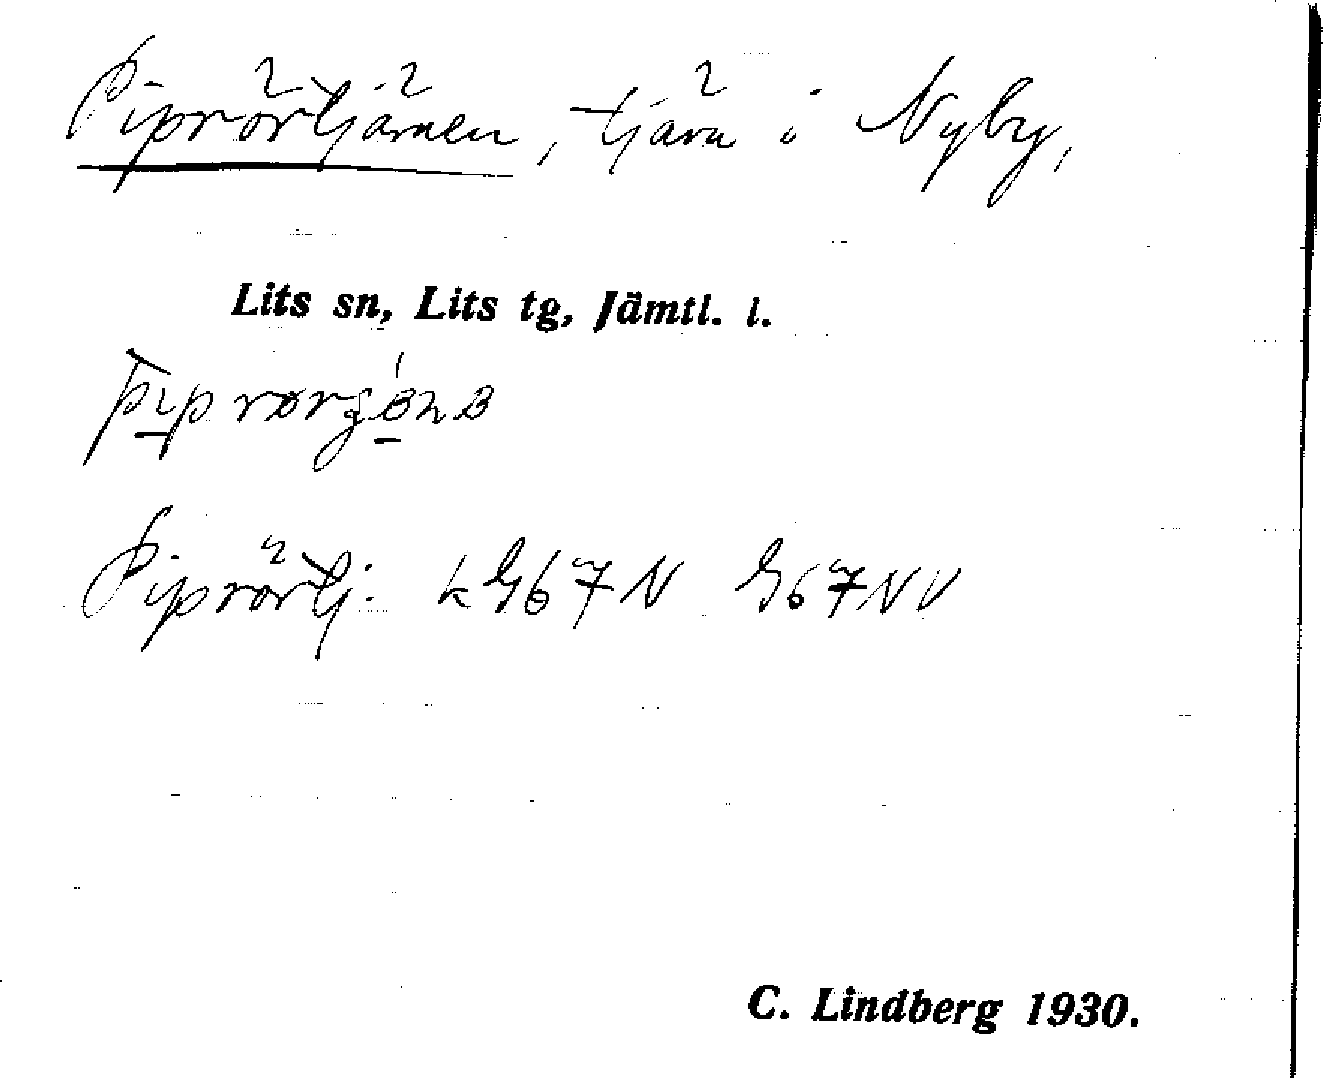 Piprörtjärnen, tjärn i Nyby,
Lits sn, Lits tg, Jämtl. l.
Piprörtj. k G67N G67NV
C. Lindberg 1930.